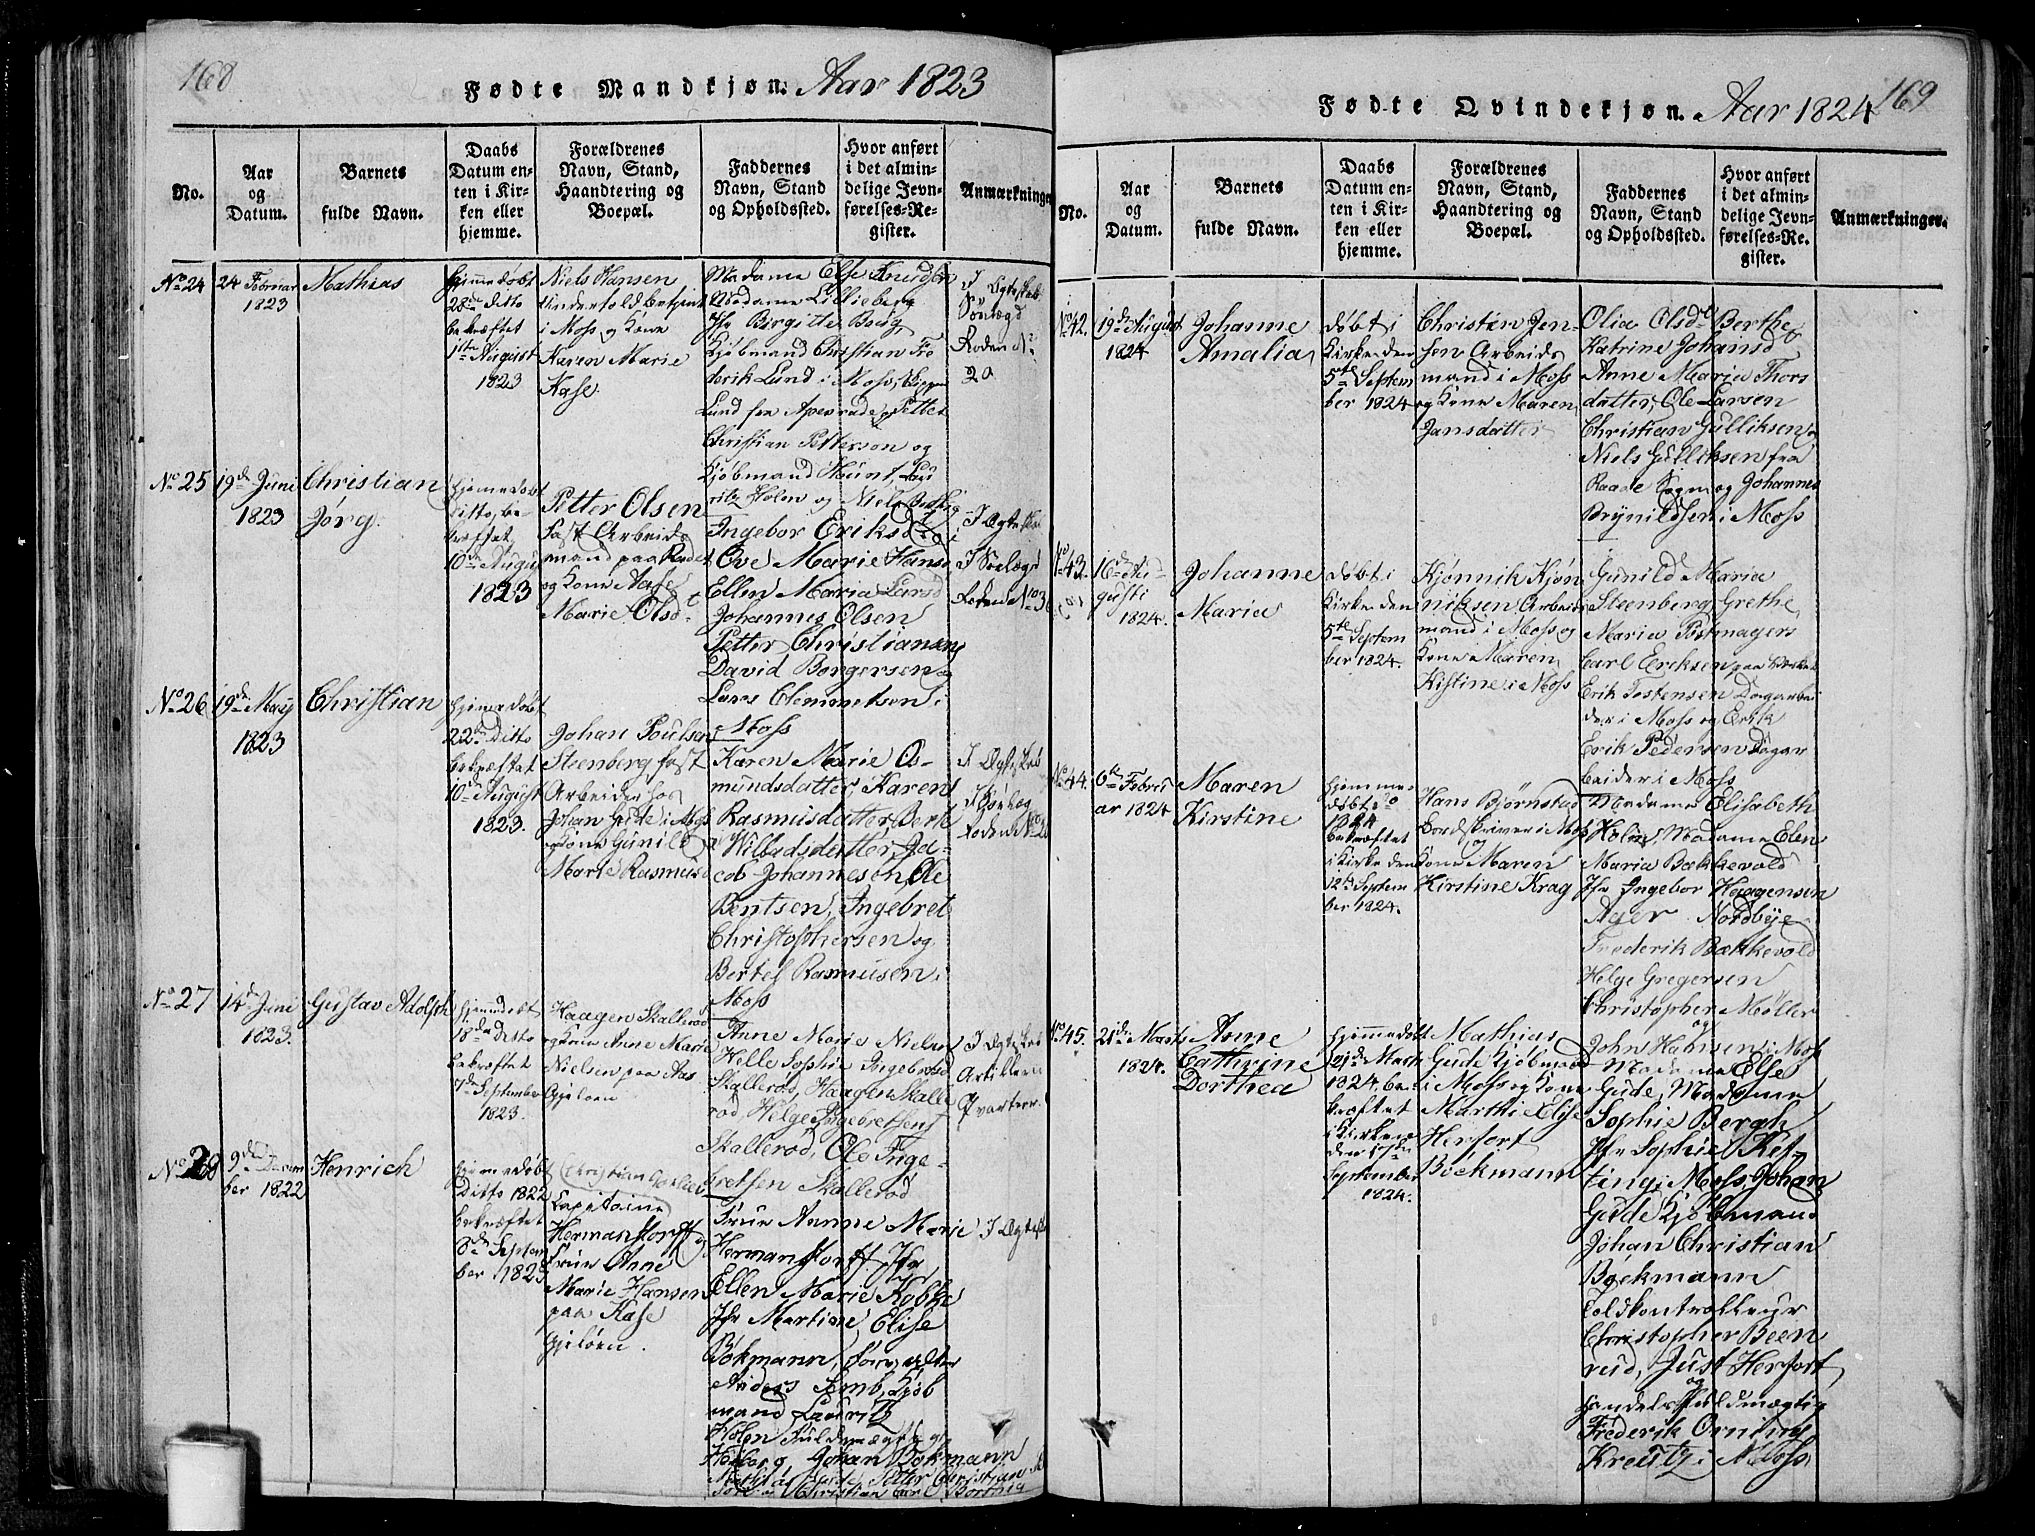 168
Fødte Mandkjøn. Aar 1823
No.
Aar
og
Datum.
Barnets
fulde Navn.
Daabs
Datum en-
ten i Kir-
ken eller
hjemme.
Forældrenes
Navn, Stand,
Haandtering og
Boepæl.
Faddernes
Navn, Stand
og Opholdssted.
Hvor anført
i det almin-
delige Jevn-
førelses-Re-
gister.
Anmærkninger
No 24
24 Februar
1823
Mathias
hjemmedøbt
28de Ditto
bekræftet
1ste August
1823
Niels Hansen
Undertoldbetjent
i Moss og Kone
Karen Marie
Kase.
Madame Else Knudsen
Madame Lillieberg
Jfr Birgitte Berg
Kjøbmand Christian Fre
derik Lund i Moss
Lund fra Apenrade, Petter
Christian Petterson og
Kjøbmand Hount, Lau
ritz Holen og Niels
I Ægteskab
Sønlægd
Roden No
20
No 25
19de Juni
1823
Christian
Jørg.
hjemmedøbt
Ditto, be-
kræftet
10de August
1823
Petter Olsen
fast Arbeids
mand paa
og Kone Aase
Marie Olsdt
Ingebor Eriksd
Ove Marie Hansd
Ellen Maria Larsd
Johannes Olsen
Petter Christiansen
David Borgersen og
Lars Clemmetsen i
Moss
I Ægtesk
I Sønlægd
Roden No 3
No 26
19de May
1823
Christian
hjemmedøbt
22de Ditto
bekræftet
10de August
1823.
Johan Poulsen
Steenberg fast
Arbeider hos
Johan Gude i Moss
og Kone Gunild
Marie Rasmusd
Karen Marie Os-
mundsdatter, Karen
Rasmusdatter, Berte
Willadsdatter, Ja-
cob Johannesen, Ole
Bentsen, Ingebret
Christophersen og
Bertel Rasmusen i
Moss
I Ægteskab
I Sønlæg
Roden No
No 27
14de Juni
1823.
Gustav Adolph
hjemmedøbt
18de Ditto
bekræftet
7de September
1823.
Haagen Skallerød
og Kone Anne Marie
Nielsen paa Aas
Gjeløen
Anne Marie Nielsen
Helle Sophie Ingebrød
Skallerød, Haagen Skalle
rød, Helge Ingebretsen
Skallerød, Ole Inge-
bretsen Skallerød
I Ægteskab
Artilleri
Qvarteer.
No 28
9de Decem
ber 1822
Henrich
hjemmedøbt
Ditto 1822
bekræftet
8de Septem
ber 1823
Capitaine
Hermanstorff og
Frue Anne
Marie Hansen
paa Kase
Gjeløen.
Frue Anne Marie
Hermanstorff, Jfr
Ellen Marie Kobke
Jfr Martine Elise
Bokmann, Forvalter
Anders Semb, Kjøb
mand Lauritz
Holen Fuldmægtig
Høiborg, Johan Bokmann
Mathias Gude Petter Christian
I Ægtesk
169
Fødte Qvindekjøn. Aar 1824
No.
Aar
og
Datum.
Barnets
fulde Navn.
Daabs
Datum en-
ten i Kir-
ken eller
hjemme.
Forældrenes
Navn, Stand,
Haandtering og
Boepæl.
Faddernes
Navn, Stand
og Opholdssted.
Hvor anført
i det almin-
delige Jevn-
førelses-Re-
gister.
Anmærkninger.
No 42.
19de August
1824
Johanne
Amalia
døbt i
Kirke den
5te Septem
ber 1824
Christen Jen-
sen Arbeids
mand i Moss
og Kone Maren
Jansdatter
Olia Olsdt Berthe
Katrine Johansd
Anne Maria Thors
datter, Ole Larsen
Christian Gulliksen og
Niels Gulliksen fra
Raade Sogn og Johannes
Brynildsen i Moss
No 43.
16de Au-
gusti
1824.
Johanne
Maria
døbt i
Kirke den
5te Septem
ber 1824.
Kjønnik Kjøn
niksen Arbeids
mand i Moss og
Kone Maren
Kistine i Moss
Gunild Maria
Steenberg, Grethe
Maria Postmagers
Carl Ericksen paa
Erik Tostensen Dagarbei
der i Moss og Erik
Erik Pedersen Dagar
beider i Moss
No 44.
6te Febru
ar 1824
Maren
Kirstine
hjemme
døbt
1824
bekræftet
i Kirke den
12te Septem
ber 1824.
Hans Bjørnstad
Bordskriver i Moss
og
Kone Maren
Kirstine Krag
Madame Elisabeth
Holm, Madame Elen
Maria Bækkevold
Jfr Ingebor Haagensen
Ager Nordbye
Frederik Bækkevold
Helge Gregersen
Christopher Møller
og
John Hansen i Moss
No 45.
21de Marts
1824.
Anne
Cathrine
Dorthea
hjemmedøbt
21de Marts
1824, be-
kræftet
i Kirken
den
September
1824.
Mathias
Gude Kjøbmand
i Moss og Kone
Marthe Elise
Herfort
Bockmann
Madame Else
Gude, Madame
Sophie Bergh
Jfr Sophie Ket-
ting i Moss, Johan
Gude Kjøbmand
Johan Christian
Bockmann
Toldkontrolleur
Christopher Been
rud, Just Herfort
og
Handels Fuldmægtig
Frederik Orning
Kreutz i Moss